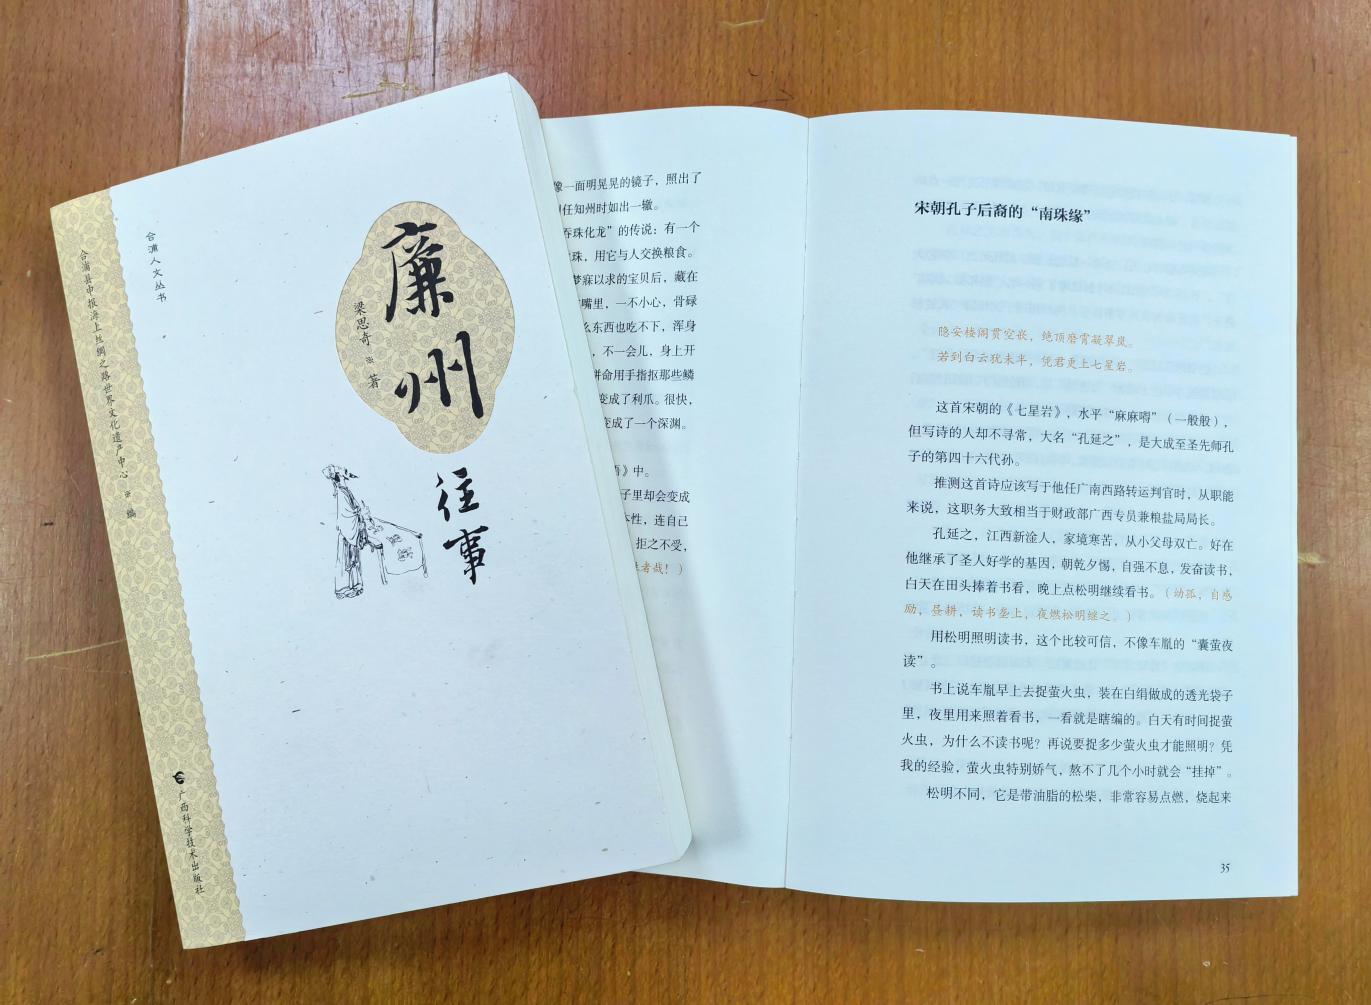 合浦县申报海上丝绸之路世界文化遗产中心 编
广西科学技术出版社
合浦人文丛书
廉州
梁思奇 著
往事
像一面明晃晃的镜子，照出了
任知州时如出一辙。
吞珠化龙”的传说：有一个
珠，用它与人交换粮食。
梦寐以求的宝贝后，藏在
嘴里，一不小心，骨碌
么东西也吃不下，浑身
，不一会儿，身上开
拼命用手指抠那些鳞
变成了利爪。很快，
变成了一个深渊。
》中。
子里却会变成
本性，连自己
拒之不受，
者哉！）
宋朝孔子后裔的“南珠缘”
隐安楼阁贯空嵌，绝顶磨霄凝翠岚。
若到白云犹未半，凭君更上七星岩。
这首宋朝的《七星岩》，水平“麻麻嘚”（一般般），
但写诗的人却不寻常，大名“孔延之”，是大成至圣先师孔
子的第四十六代孙。
推测这首诗应该写于他任广南西路转运判官时，从职能
来说，这职务大致相当于财政部广西专员兼粮盐局局长。
孔延之，江西新淦人，家境寒苦，从小父母双亡。好在
他继承了圣人好学的基因，朝乾夕惕，自强不息，发奋读书，
白天在田头捧着书看，晚上点松明继续看书。（幼孤，自感
励，昼耕，读书垄上，夜燃松明继之。）
用松明照明读书，这个比较可信，不像车胤的“囊萤夜
读”。
书上说车胤早上去捉萤火虫，装在白绢做成的透光袋子
里，夜里用来照着看书，一看就是瞎编的。白天有时间捉萤
火虫，为什么不读书呢？再说要捉多少萤火虫才能照明？凭
我的经验，萤火虫特别娇气，熬不了几个小时就会“挂掉”。
松明不同，它是带油脂的松柴，非常容易点燃，烧起来
35